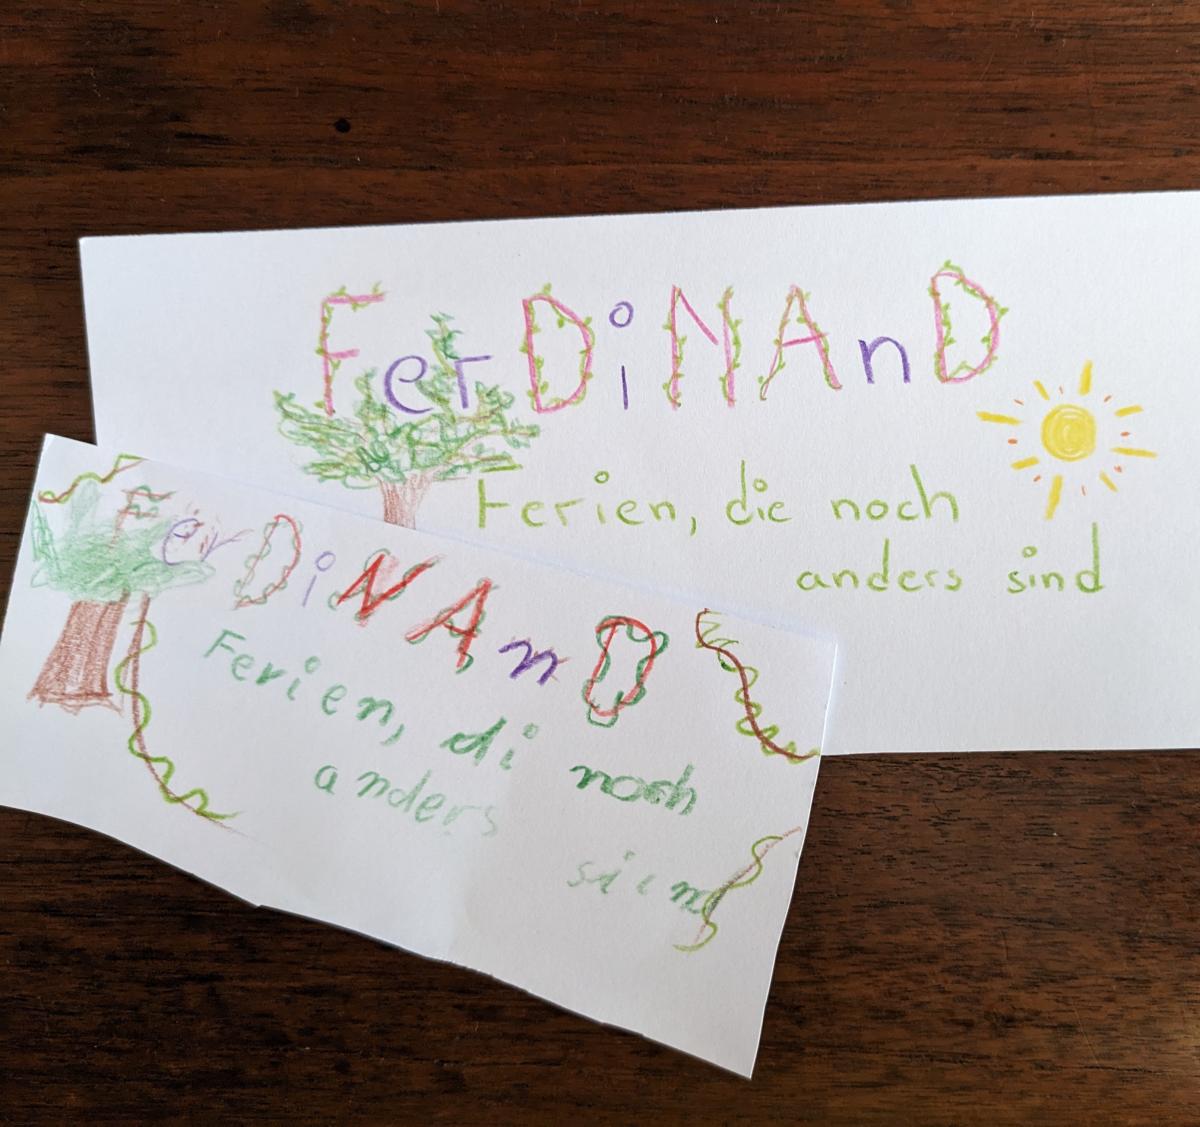 FerDiNAnD
Ferien, die noch
anders sind
FerDiNAnD
Ferien, di noch
anders
siind